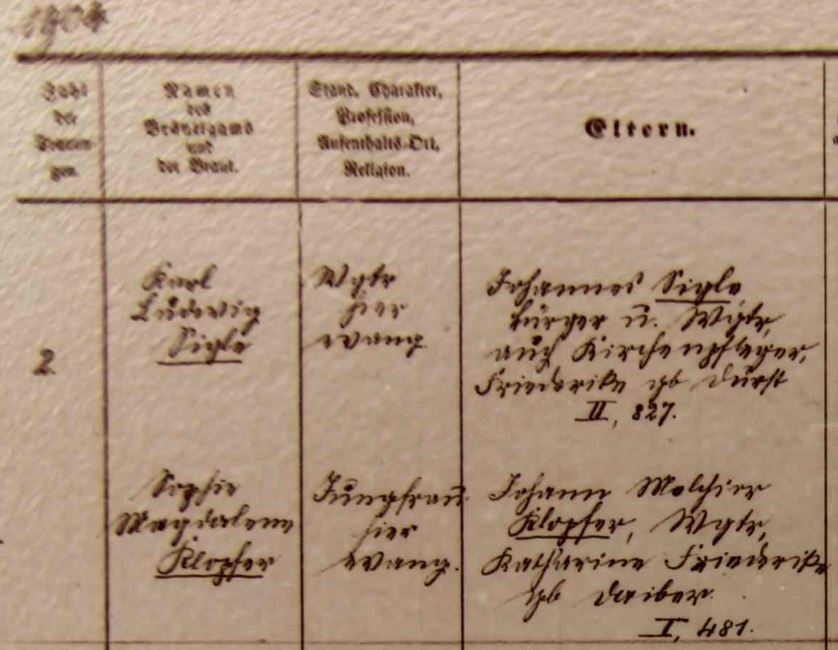 1904
Zahl
der
Trauun-
gen.
Namen
des
Bräutigams
und
der Braut.
Stand, Charakter,
Profession,
Aufenthalts-Ort,
Religion.
Eltern.
2
Karl
Ludwig
Sigle
Wgtr
hier
evang.
Johannes Sigle
Bürger u. Wgtr,
auch Kirchenpfleger,
Friederike gb Durst
II, 827.
Sophie
Magdalene
Klopfer
Jungfrau
hier
evang.
Johann Melchior
Klopfer, Wgtr,
Katharine Friederike
gb Daiber.
I, 481.